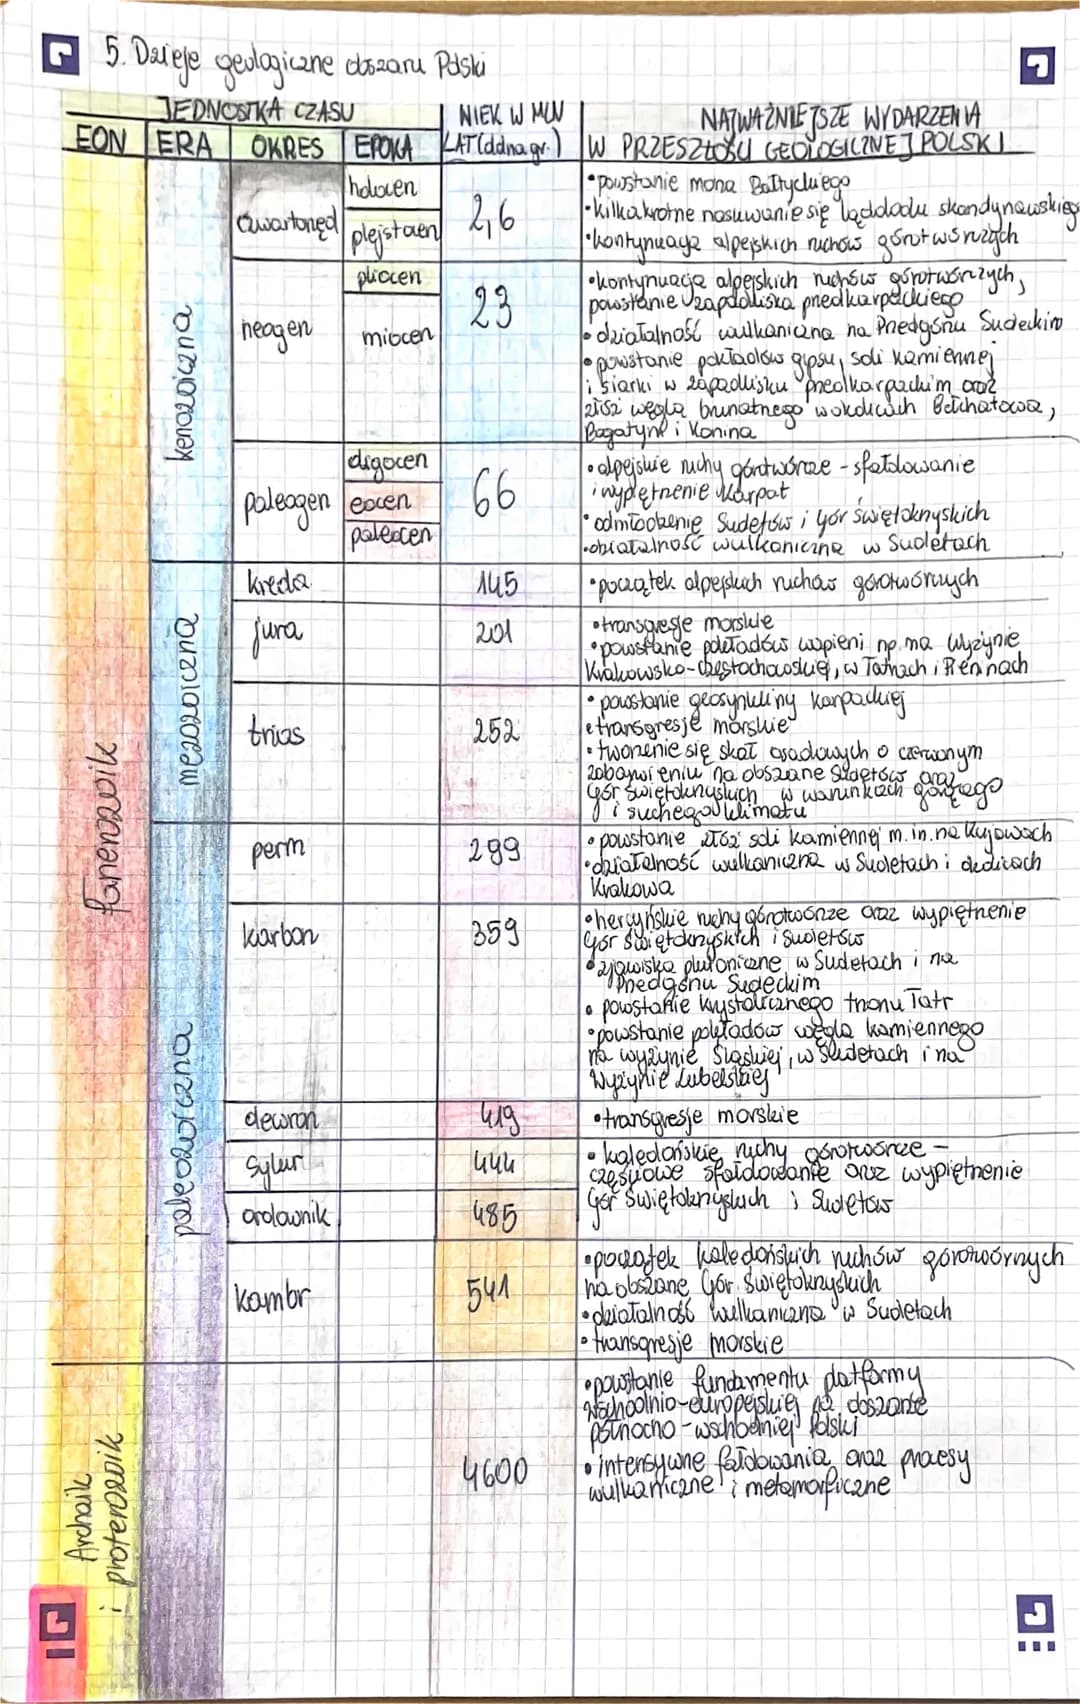 5. Dzieje geologiczne obszaru Polski
JEDNOSTKA CZASU
EON ERA OKRES EPOKA
WIEK W MLN
LAT (ddna gr.)
NAJWAŻNIEJSZE WYDARZENIA
W PRZESZŁOŚCI GEOLOGICZNEJ POLSKI
fanerozoik
Archaik
i proterozoik
kenozoiczna
mezozoiczna
paleozoiczna
czwartorzęd
holocen
plejstocen
2,6
• powstanie morza Bałtyckiego
• kilkakrotne nasuwanie się lądolodu skandynawskiego
• kontynuacja alpejskich ruchów górotwórczych
neogen
pliocen
miocen
23
• kontynuacja alpejskich ruchów górotwórczych,
powstanie zapadliska przedkarpackiego
• działalność wulkaniczna na Przedgórzu Sudeckim
• powstanie pokładów gipsu, soli kamiennej
i siarki w zapadlisku przedkarpackim oraz
złóż węgla brunatnego w okolicach Bełchatowa,
Bogatyni i Konina
paleogen
oligocen
eocen
paleocen
66
• alpejskie ruchy górotwórcze - sfałdowanie
i wypiętrzenie Karpat
• odmłodzenie Sudetów i Gór Świętokrzyskich
• działalność wulkaniczna w Sudetach
kreda
145
• początek alpejskich ruchów górotwórczych
jura
201
• transgresje morskie
• powstanie pokładów wapieni np. na Wyżynie
Krakowsko-Częstochowskiej, w Tatrach i Pieninach
trias
252
• powstanie geosynkliny karpackiej
• transgresje morskie
• tworzenie się skał osadowych o czerwonym
zabarwieniu na obszarze Sudetów oraz
Gór Świętokrzyskich w warunkach gorącego
i suchego klimatu
perm
299
• powstanie złóż soli kamiennej m.in. na Kujawach
• działalność wulkaniczna w Sudetach i okolicach
Krakowa
karbon
359
• hercyńskie ruchy górotwórcze oraz wypiętrzenie
Gór Świętokrzyskich i Sudetów
• zjawiska plutoniczne w Sudetach i na
Przedgórzu Sudeckim
• powstanie krystalicznego trzonu Tatr
• powstanie pokładów węgla kamiennego
na Wyżynie Śląskiej, w Sudetach i na
Wyżynie Lubelskiej
dewon
419
• transgresje morskie
sylur
444
ordownik
485
• kaledońskie ruchy górotwórcze -
częściowe sfałdowanie oraz wypiętrzenie
Gór Świętokrzyskich i Sudetów
kambr
541
• początek kaledońskich ruchów górotwórczych
na obszarze Gór Świętokrzyskich
• działalność wulkaniczna w Sudetach
• transgresje morskie
4600
• powstanie fundamentu platformy
wschodnio-europejskiej na obszarze
północno-wschodniej Polski
• intensywne fałdowania oraz procesy
wulkaniczne i metamorficzne